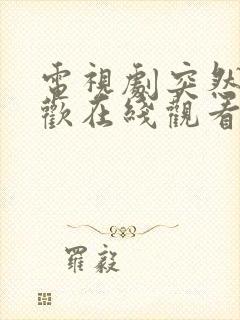 電視劇突然
歡在綫觀看
羅毅